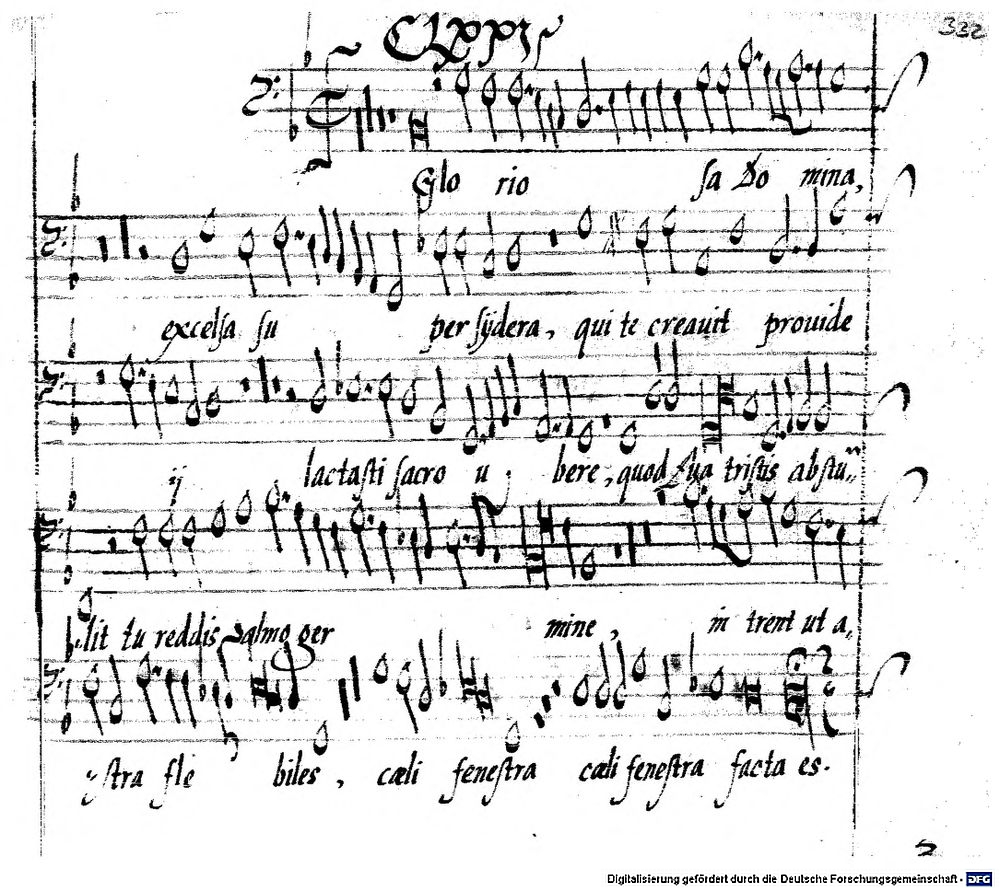 332
Glo rio sa Do mina,
excelsa su per sÿdera, qui te creauit prouide
ij lactasti sacro u bere, quod Eua tristis abstu„
lit tu reddis almo ger mine, in trent ut a„
stra fle biles, cæli fenestra cæli fenestra facta es.
Digitalisierung gefördert durch die Deutsche Forschungsgemeinschaft - DFG